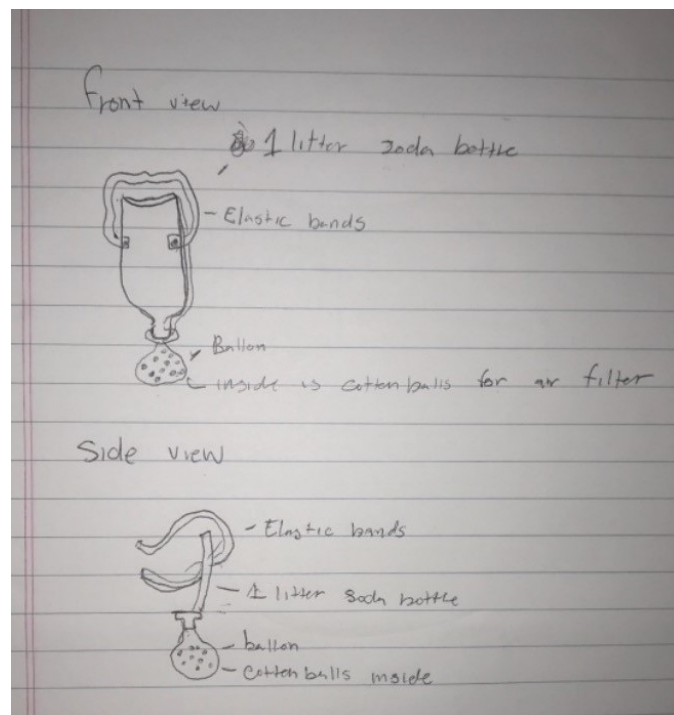 Front view
1 litter soda bottle
Elastic bands
Ballon
inside is cotton balls for air filter
Side view
Elastic bands
1 litter soda bottle
ballon
cotten balls inside